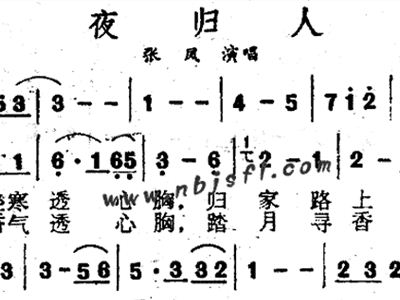 夜归人
张凤 演唱
53 | 3 - - | 1 - - | 4 - 5 | 7 1 2
1 | 6 · 1 65 | 3 - 6 | 2 - 1 | 2 -
寒透 心胸,归 家路上
气透 心胸,踏 月寻香
3 | 3 - 56 | 5 · 3 32 | 1 - - | 2 3 2
www.nbjsff.com